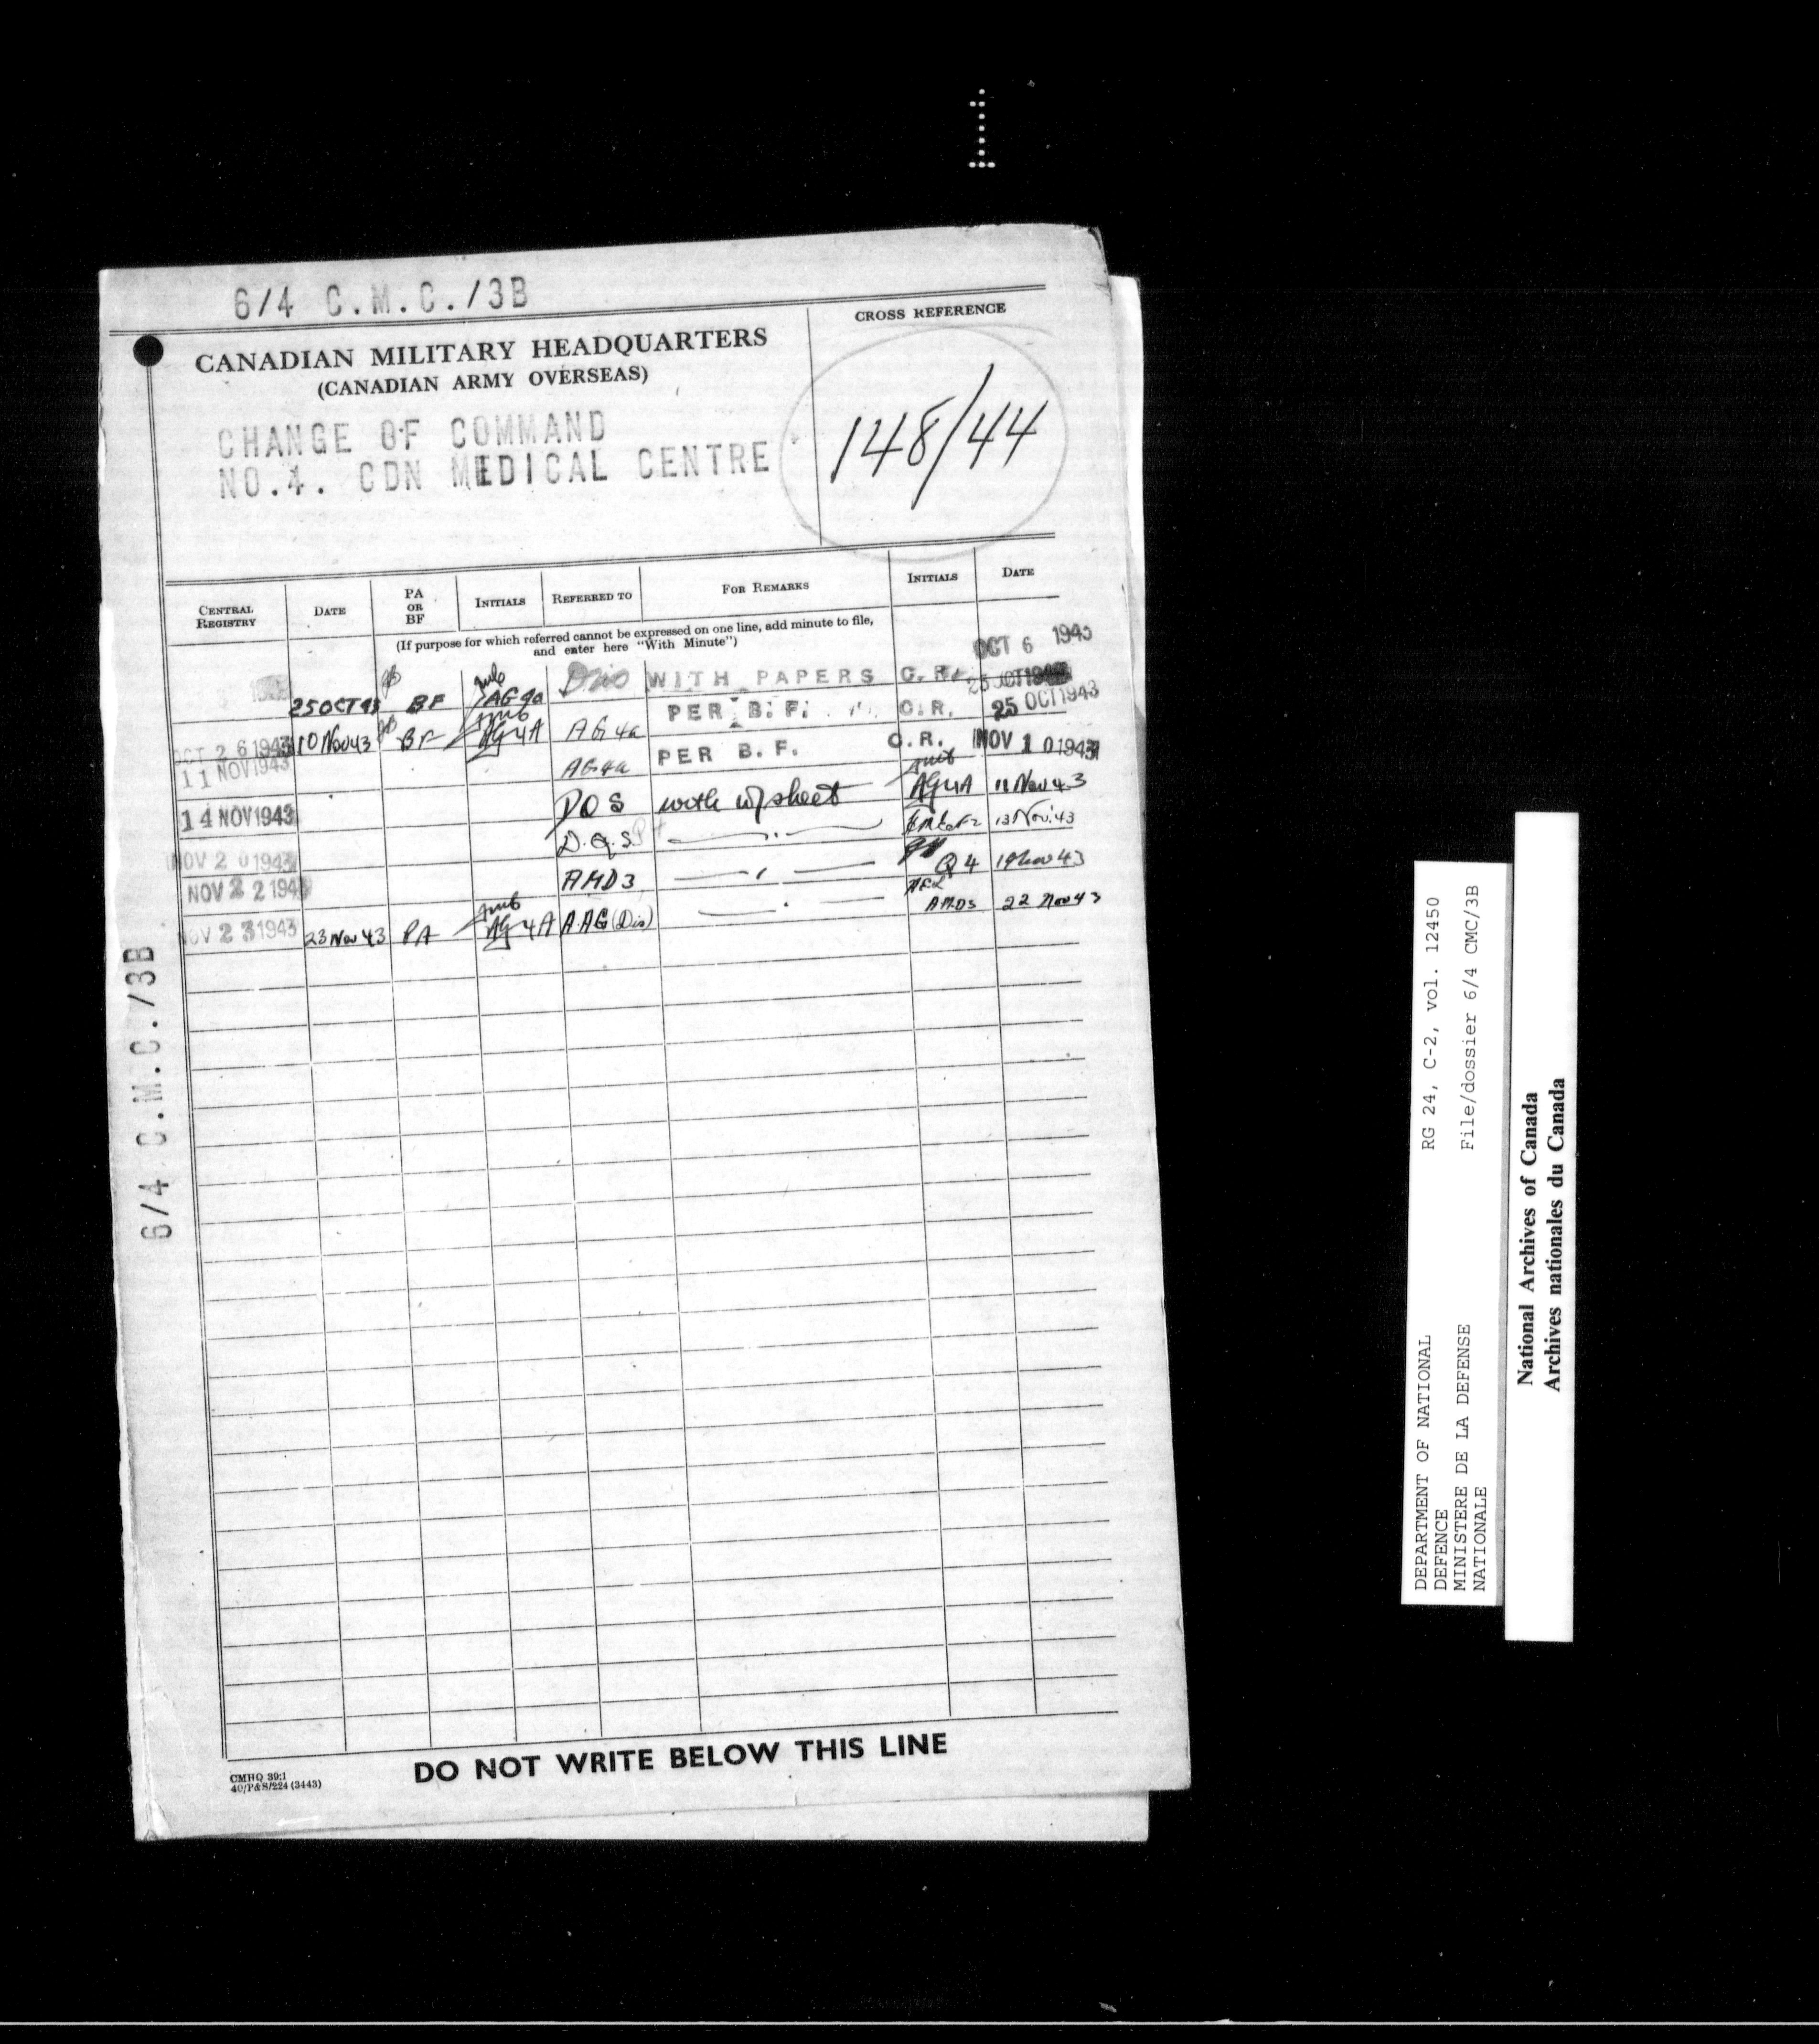 6/4 C.M.C./3B
CROSS REFERENCE
CANADIAN MILITARY HEADQUARTERS
(CANADIAN ARMY OVERSEAS)
148/44
CHANGE OF COMMAND
NO.4. CDN MEDICAL CENTRE
CENTRAL REGISTRY DATE PA OR BF INITIALS REFERRED TO FOR REMARKS INITIALS DATE
(If purpose for which referred cannot be expressed on one line, add minute to file,
and enter here "With Minute")
WITH PAPERS C.R. OCT 6 1943
25 OCT 43 BF PER B.F. C.R. 25 OCT 1943
OCT 26 1943 10 Nov 43 BF AG4A AG4a PER B.F. C.R. NOV 10 1943
11 NOV 1943 AG4a
14 NOV 1943 DOS with w/sheet AG4A 11 Nov 43
D.Q.S. 13 Nov. 43
NOV 20 1943 AMD3 Q4 19 Nov 43
NOV 22 1943 22 Nov 43
NOV 23 1943 23 Nov 43 PA AG4A A.AG (Dis)
6/4 C.M.C./3B
DO NOT WRITE BELOW THIS LINE
CMHQ 39:1
40/P&S/224 (3443)
DEPARTMENT OF NATIONAL
DEFENCE
MINISTERE DE LA DEFENSE
NATIONALE
RG 24, C-2, vol. 12450
File/dossier 6/4 CMC/3B
National Archives of Canada
Archives nationales du Canada